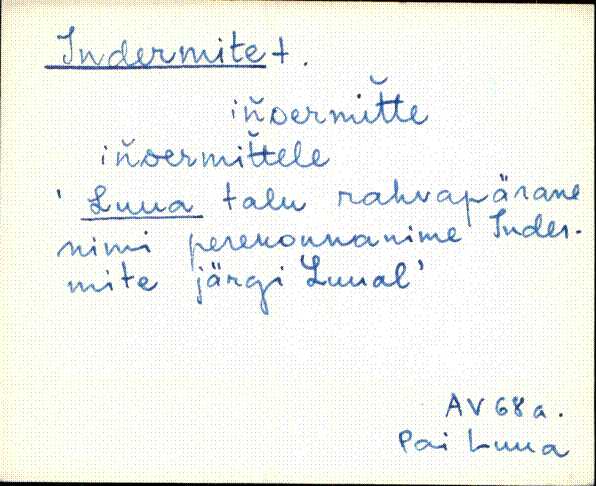 Indermite t.
iňDermit̆te
iňDermit̆tele
' Luua talu rahvapärane
nimi perekonnanime Inder-
mite järgi Luual'
AV 68 a.
Pai Luua